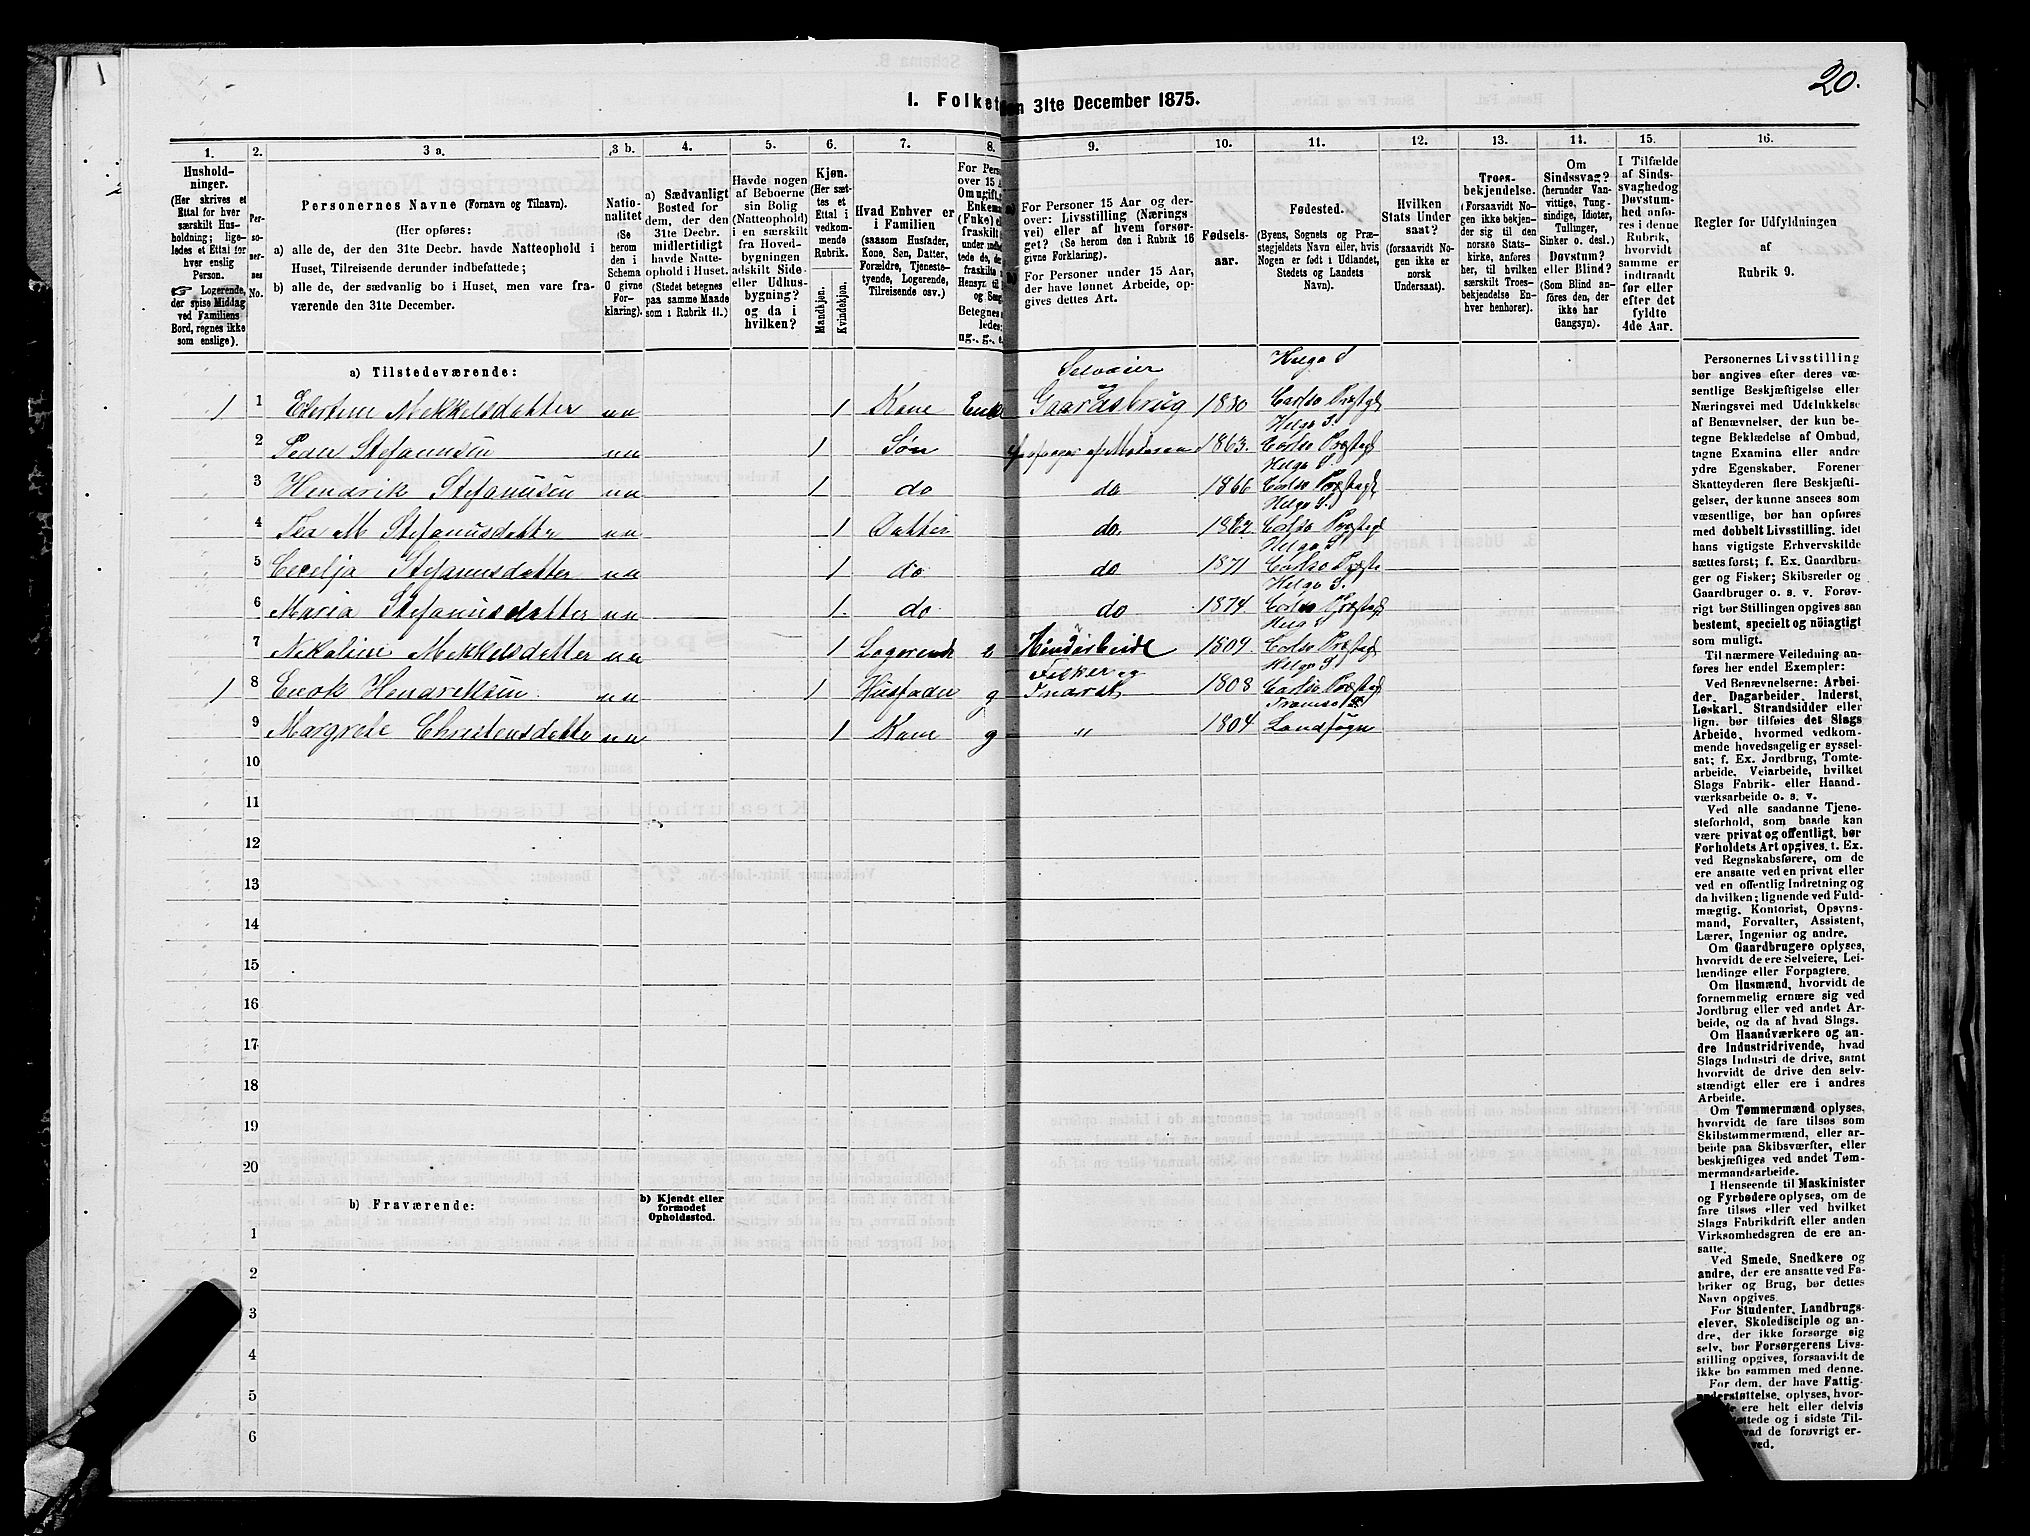 20.
I. Folket
en 31te December 1875.
1. 2. 3 a. 3 b. 4. 5. 6. 7. 8. 9. 10. 11. 12. 13. 14. 15. 16.
Hushold-
ninger.
(Her skrives et
Ettal for hver
særskilt Hus-
holdning; lige-
ledes et Ettal for
hver enslig
Person.
☞ Logerende,
der spise Middag
ved Familiens
Bord, regnes ikke
som enslige).
Per-
so-
ner-
nes
No.
Personernes Navne (Fornavn og Tilnavn).
(Her opføres:
a) alle de, der den 31te Decbr. havde Natteophold i
Huset, Tilreisende derunder indbefattede;
b) alle de, der sædvanlig bo i Huset, men vare fra-
værende den 31te December.
Natio-
nalitet
(Se
herom
den i
Schema
O givne
For-
klaring).
a) Sædvanligt
Bosted for
dem, der den
31te Decbr.
midlertidigt
havde Natte-
ophold i Huset.
(Stedet betegnes
paa samme Maade
som i Rubrik 11.)
Havde nogen
af Beboerne
sin Bolig
(Natteophold)
i en særskilt
fra Hoved-
bygningen
adskilt Side-
eller Udhus-
bygning?
og da i
hvilken?
Kjøn.
(Her sæt-
tes et
Ettal i
vedkom-
mende
Rubrik.
Mandkjøn.
Kvindekjøn.
Hvad Enhver er
i Familien
(saasom Husfader,
Kone, Søn, Datter,
Forældre, Tjeneste-
tyende, Logerende,
Tilreisende osv.)
For Pers
over 15 A
Om ugift,
Enkem
(Enke) e
fraskilt
under indbe
tede de,
fraskilte
Hensyn til
og Seng
Betegnes
ledes:
ug., g., e.
For Personer 15 Aar og der-
over: Livsstilling (Nærings
vei) eller af hvem forsør-
get? (Se herom den i Rubrik 16
givne Forklaring).
For Personer under 15 Aar,
der have lønnet Arbeide, op-
gives dettes Art.
Fødsels-
aar.
Fødested.
(Byens, Sognets og Præ-
stegjeldets Navn eller, hvis
Nogen er født i Udlandet,
Stedets og Landets
Navn).
Hvilken
Stats Under
saat?
(forsaavidt No-
gen ikke er
norsk
Undersaat).
Troes-
bekjendelse.
(Forsaavidt No-
gen ikke bekjen-
der sig til den
norske Stats-
kirke, anføres
her, til hvilken
særskilt Troes-
bekjendelse En-
hver henhører).
Om
Sindssvag?
(herunder Van-
vittige, Tung-
sindige, Idioter,
Tullinger,
Sinker o. desl.)
Døvstum?
eller Blind?
(Som Blind an-
føres den, der
ikke har
Gangsyn).
I Tilfælde
af Sinds-
svaghed og
Døvstum-
hed anfø-
res i denne
Rubrik,
hvorvidt
samme er
indtraadt
før eller
efter det
fyldte
4de Aar.
Regler for Udfyldningen
af
Rubrik 9.
a) Tilstedeværende:
Selveier
Helgø S
1 1 Mekkelsdatter nn 1 Kone Enke og Gaardsbrug 1830 Carlsø Præstgd
Helgø S.
2 Peder Stefanusen nn 1 Søn 1863. Carlsø Præstgd
Helgø S.
3 Hendrik Stefanusen nn 1 do do 1866 Carlsø Præstgd
Helgø S.
4 M Stefanusdatter nn 1 Datter do. Carlsø Præstgd
Helgø S
5 Cecelja Stefanusdatter nn 1 do do 1871 Carlsø Præste
Helgø S.
6 Maria Stefanusdatter nn 1. do do 1874. Carlsø Præstgd
Helgø S
7 Nekoline Mekkelsdatter nn 1 Logerende e Haandarbeide 1809. Carlsø Præstgd
Fisker og
Helgø S.
1 8 Enok Hendreksen nn 1 Husfader g Inderst 1808 Carlsø Præstgd
Tromsø
9 Margrete Christensdatter nn 1 Kone g " 1804 Landsogn
10
11
12
13
14
15
16
17
18
19
20
b) Fraværende:
b) Kjendt eller
formodet
Opholdssted.
1
2
3
4
5
6
Personernes Livsstilling
bør angives efter deres væ-
sentlige Beskjæftigelse eller
Næringsvei med Udelukkelse
af Benævnelser, der kun be-
tegne Beklædelse af Ombud,
tagne Examina eller andre
ydre Egenskaber. Forener
Skatteyderen flere Beskjæfti-
gelser, der kunne ansees som
væsentlige, bør han opføres
med dobbelt Livsstilling, idet
hans vigtigste Erhvervskilde
sættes først; f. Ex. Gaardbru-
ger og Fisker; Skibsreder og
Gaardbruger o. s. v. Forøv-
rigt bør Stillingen opgives saa
bestemt, specielt og nøiagtigt
som muligt.
Til nærmere Veiledning an-
føres her endel Exempler:
Ved Benævnelserne: Arbei-
der, Dagarbeider, Inderst,
Løskarl, Strandsidder eller
lign. bør tilføies det Slags
Arbeide, hvormed vedkom-
mende hovedsagelig er syssel-
sat; f. Ex. Jordbrug, Tomte-
arbeide, Veiarbeide, hvilket
Slags Fabrik- eller Haand-
værksarbeide o. s. v.
Ved alle saadanne Tjene-
steforhold, som baade kan
være privat og offentligt, bør
Forholdets Art opgives, t. Ex.
ved Regnskabsførere, om de
ere ansatte ved en privat eller
ved en offentlig Indretning og
da hvilken; lignende ved Fuld-
mægtig, Kontorist, Opsyns-
mand, Forvalter, Assistent,
Lærer, Ingeniør og andre.
Om Gaardbrugere oplyses,
hvorvidt de ere Selveiere, Lei-
lændinge eller Forpagtere.
Om Husmænd, hvorvidt de
fornemmelig ernære sig ved
Jordbrug eller ved andet Ar-
beide, og da af hvad Slags.
Om Haandværkere og an-
dre Industridrivende, hvad
Slags Industri de drive, samt
hvorvidt de drive den selv-
stændigt eller ere i andres
Arbeide.
Om Tømmermænd oplyses,
hvorvidt de fare tilsøs som
Skibstømmermænd, eller ar-
beide paa Skibsværfter, eller
beskjæftiges ved andet Tøm-
mermandsarbeide.
I Henseende til Maskinister
og Fyrbødere oplyses, om de
fare tilsøs eller ved hvilket
Slags Fabrikdrift eller anden
Virksomhedsgren de ere an-
satte.
Ved Smede, Snedkere og
andre, der ere ansatte ved Fa-
briker og Brug, bør dettes
Navn opgives.
For Studenter, Landbrugs-
elever, Skoledisciple og an-
dre, der ikke forsørge sig
selv, bør Forsørgerens Livs-
stilling opgives, forsaavidt de
ikke bo sammen med denne.
For dem, der have Fattig-
understøttelse, oplyses, hvor-
ere helt eller delvis
støttede og i sidste Til-
vad de forøvrigt er-
ved.